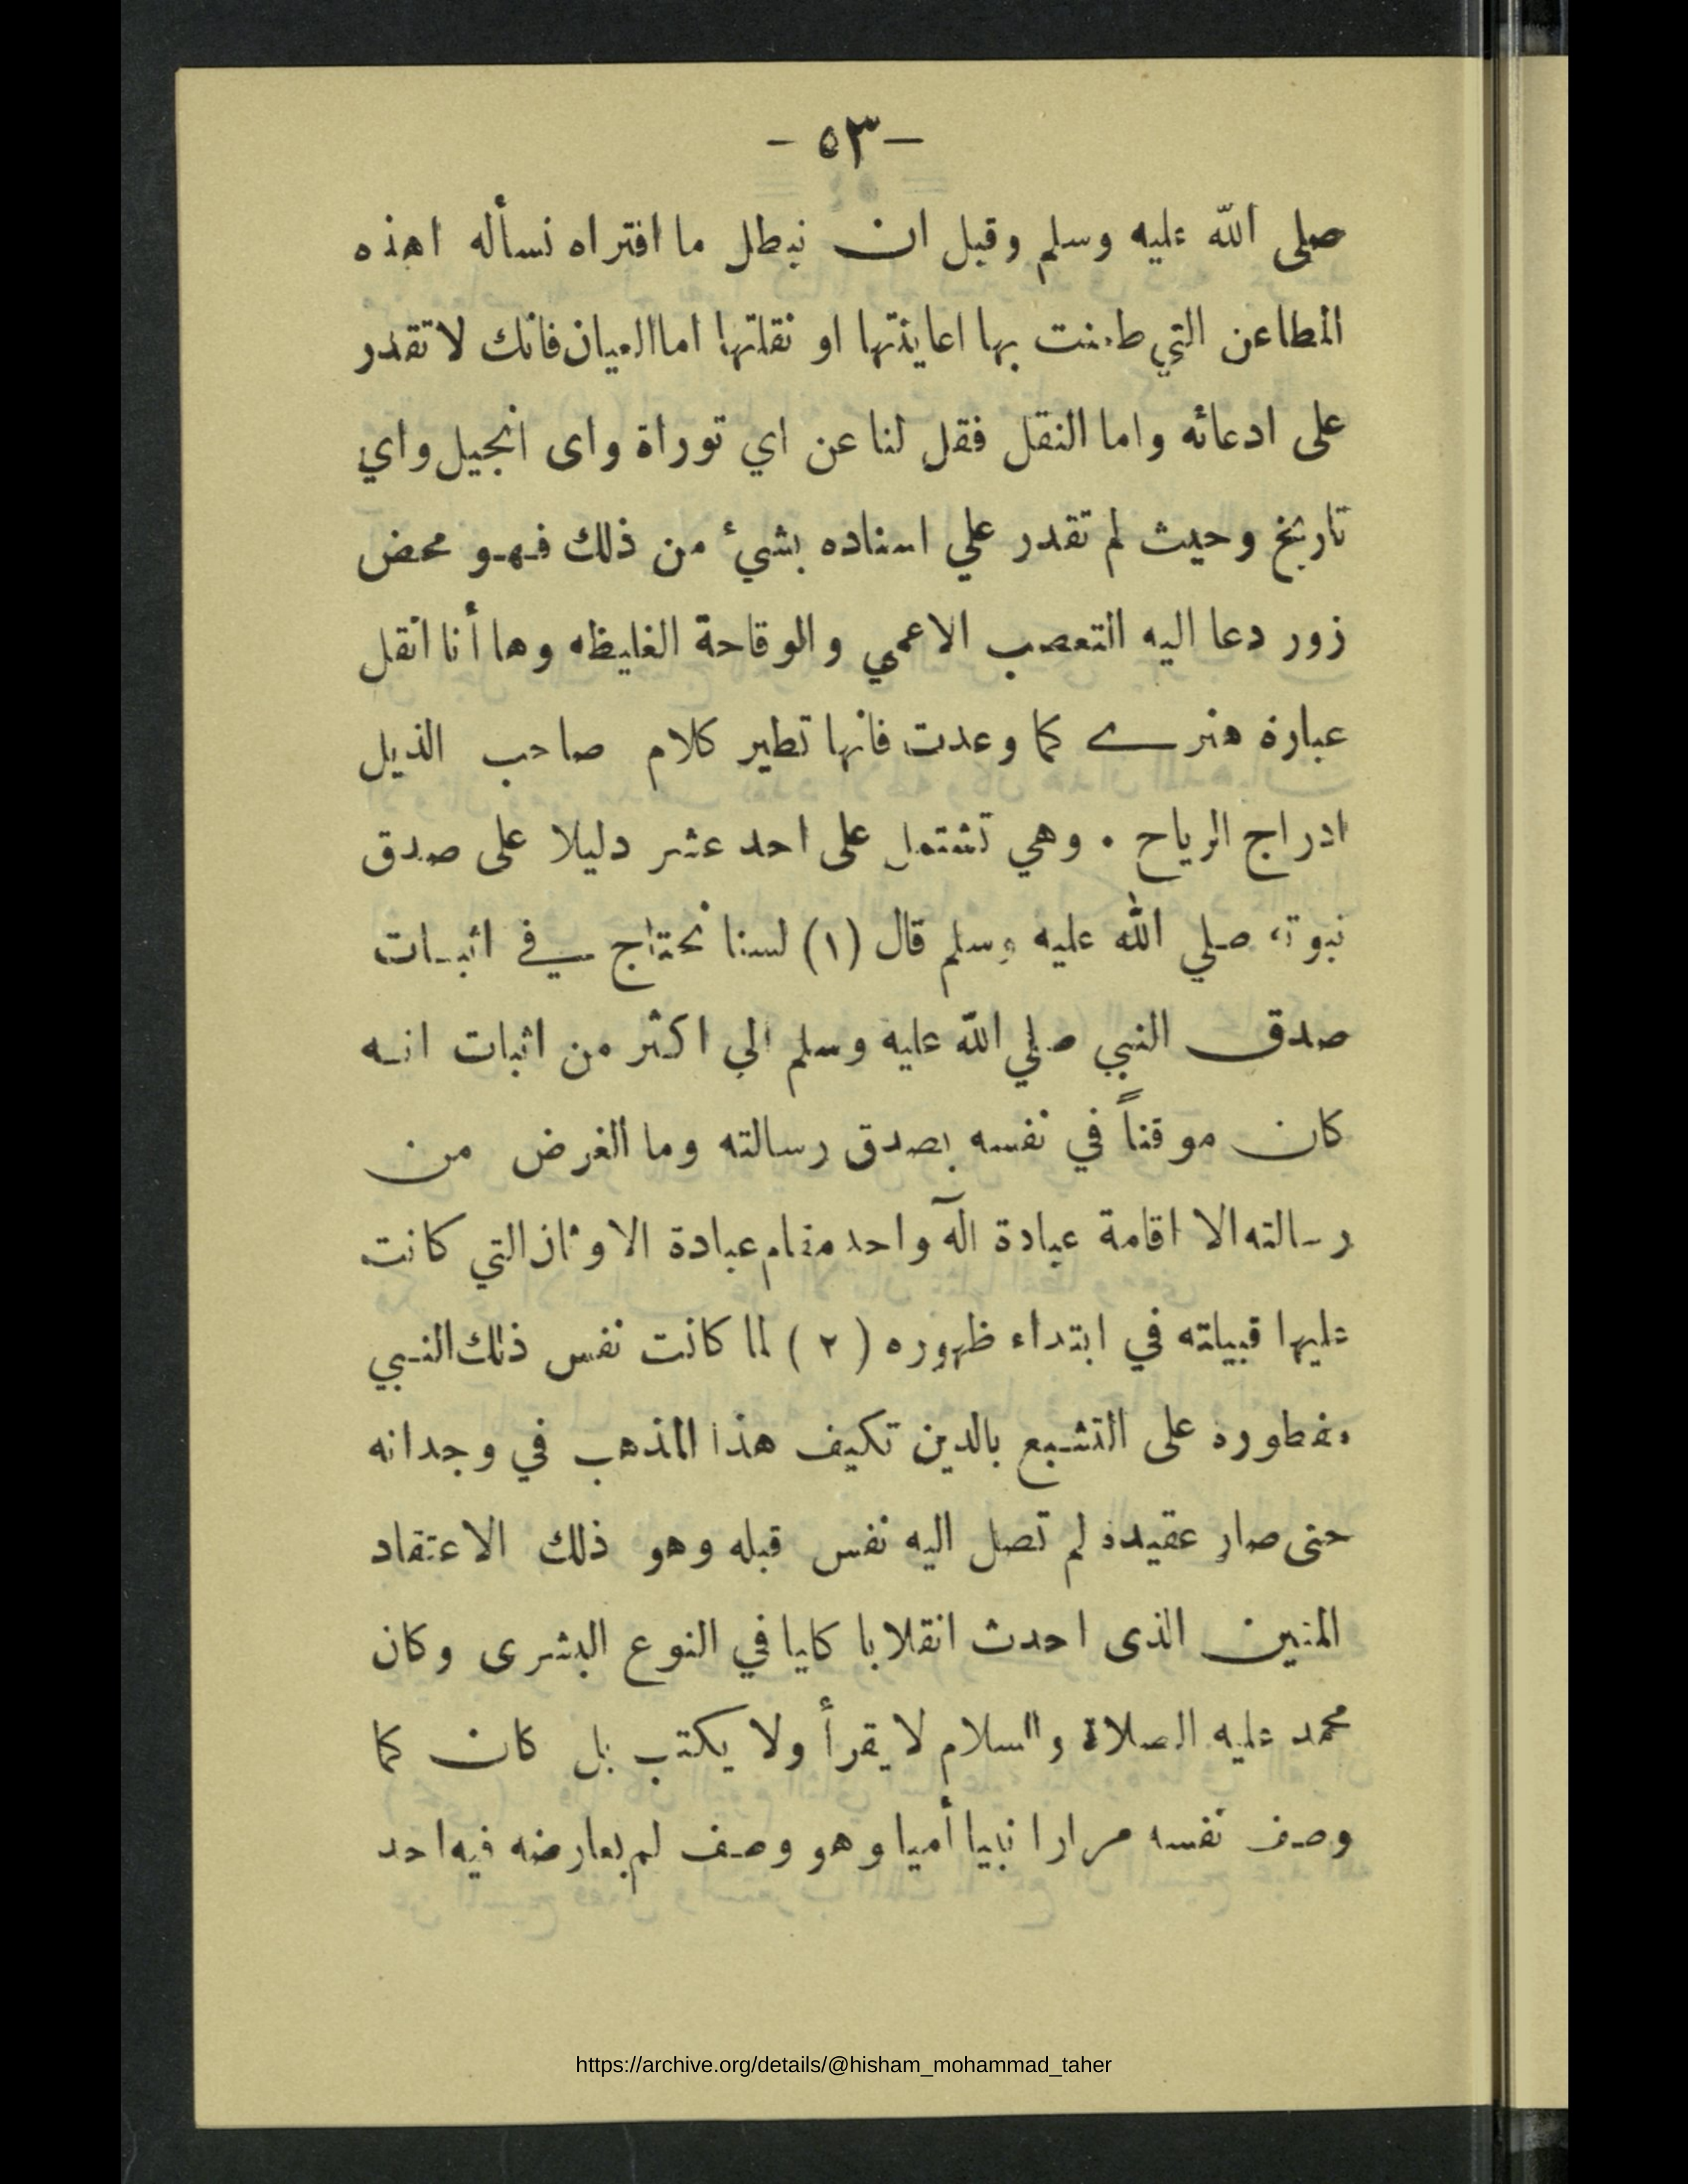 — ٥٣ —
صلى الله عليه وسلم وقبل ان نبطل ما افتراه نسأله اهذه
المطاعن التي طعنت بها اعاينتها او نقلتها اما العيان فانك لا تقدر
على ادعائه واما النقل فقل لنا عن اي توراة واى انجيل واي
تاريخ وحيث لم تقدر علي اسناده بشيء من ذلك فهو محض
زور دعا اليه التعصب الاعمي والوقاحة الغليظه وها أنا انقل
عبارة هنرے كما وعدت فانها تطير كلام صاحب الذيل
ادراج الرياح . وهي تشتمل على احد عشر دليلا على صدق
نبوته صلي الله عليه وسلم قال (١) لسنا نحتاج في اثبات
صدق النبي صلي الله عليه وسلم الي اكثر من اثبات انه
كان موقناً في نفسه بصدق رسالته وما الغرض من
رسالته الا اقامة عبادة آله واحد مقام عبادة الاوثان التي كانت
عليها قبيلته في ابتداء ظهوره ( ٢ ) لما كانت نفس ذلك النبي
مفطورة على التشبع بالدين تكيف هذا المذهب في وجدانه
حتى صار عقيدة لم تصل اليه نفس قبله وهو ذلك الاعتقاد
المتين الذى احدث انقلابا كليا في النوع البشرى وكان
محمد عليه الصلاة والسلام لا يقرأ ولا يكتب بل كان كما
وصف نفسه مرارا نبيا أميا وهو وصف لم يعارضه فيه احد
https://archive.org/details/@hisham_mohammad_taher